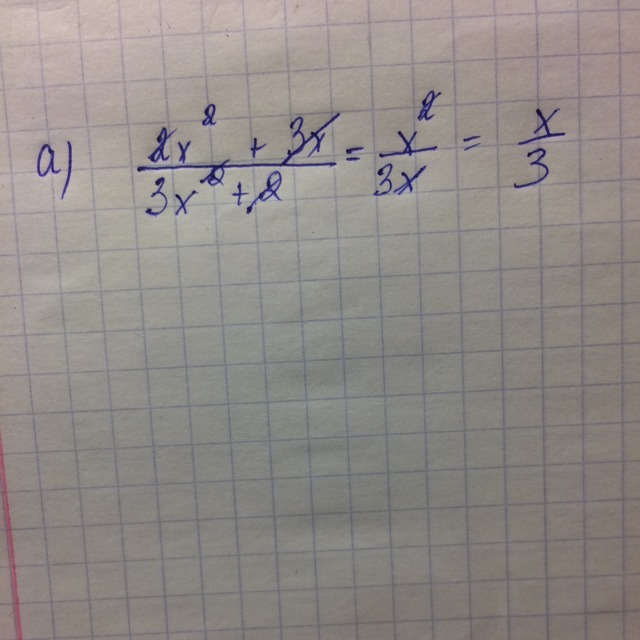 а) (2x² + 3x)/(3x² + 2) = x²/3x = x/3